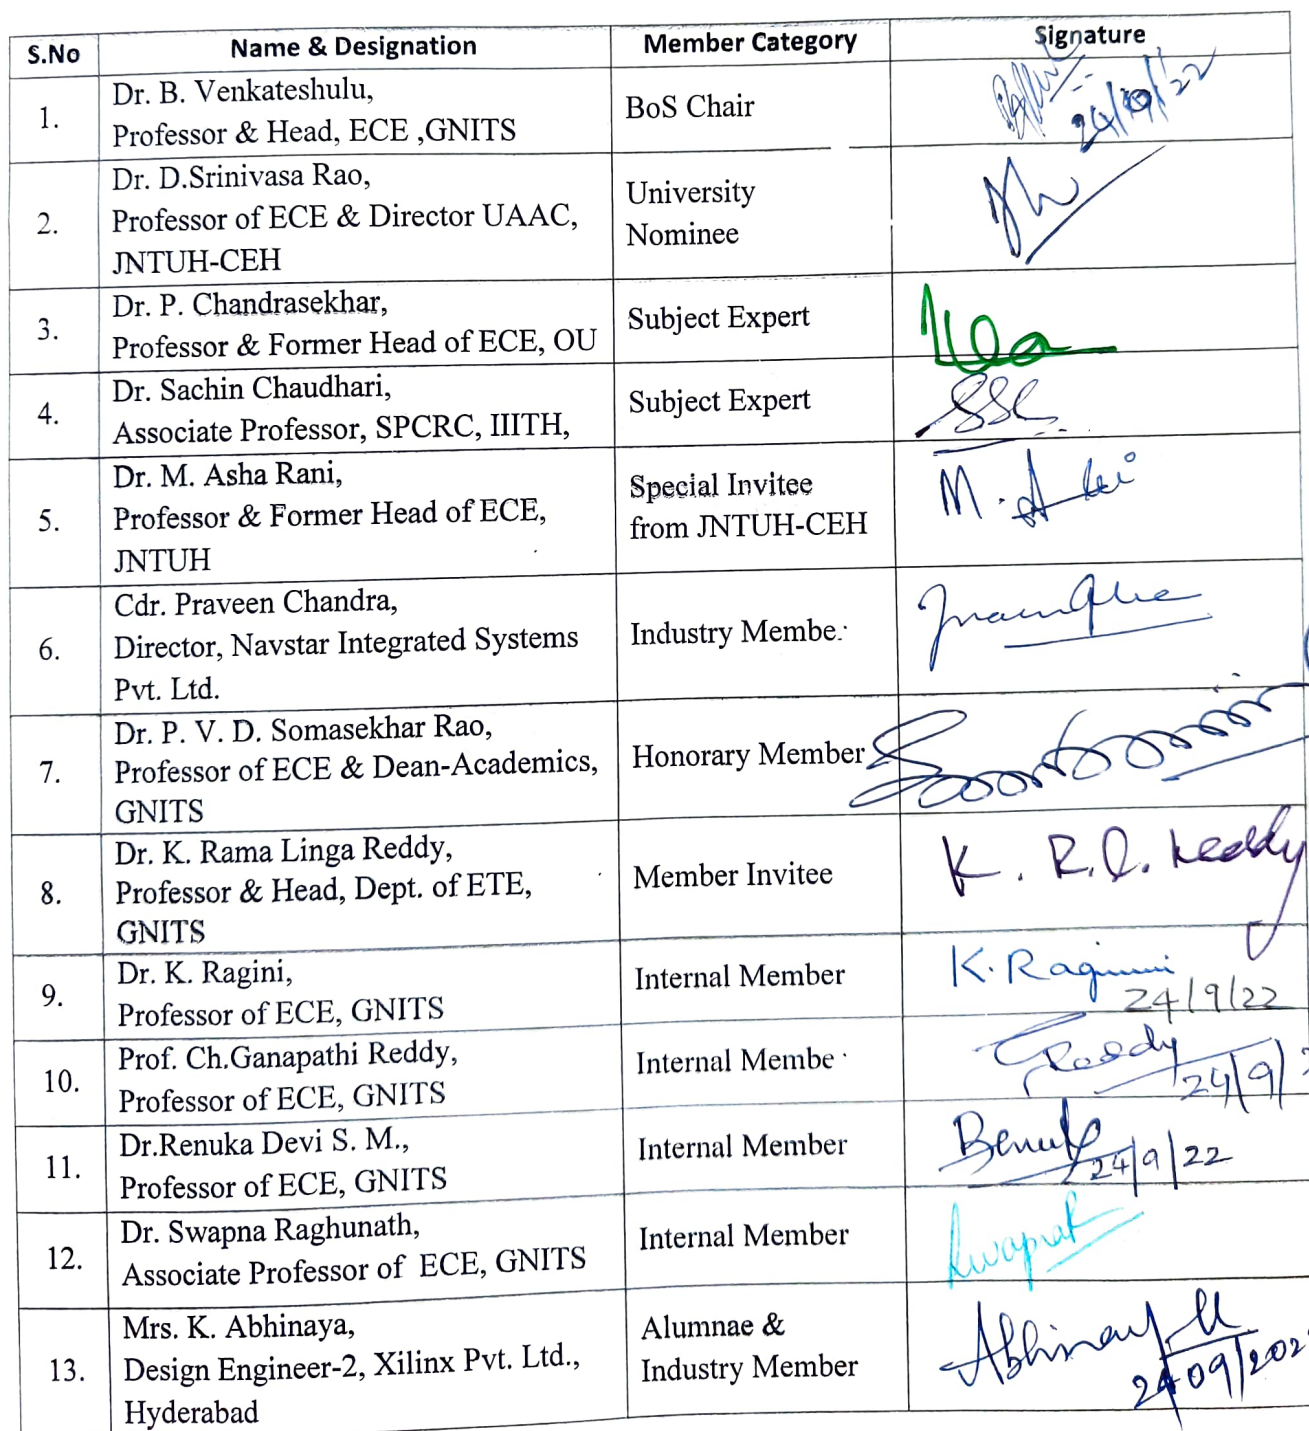 S.No Name & Designation Member Category Signature
1. Dr. B. Venkateshulu,
Professor & Head, ECE ,GNITS
BoS Chair
24/09/22
2. Dr. D.Srinivasa Rao,
Professor of ECE & Director UAAC,
JNTUH-CEH
University
Nominee
3. Dr. P. Chandrasekhar,
Professor & Former Head of ECE, OU
Subject Expert
4. Dr. Sachin Chaudhari,
Associate Professor, SPCRC, IIITH,
Subject Expert
SSC
5. Dr. M. Asha Rani,
Professor & Former Head of ECE,
JNTUH
Special Invitee
from JNTUH-CEH
M.
6. Cdr. Praveen Chandra,
Director, Navstar Integrated Systems
Pvt. Ltd.
Industry Membe
7. Dr. P. V. D. Somasekhar Rao,
Professor of ECE & Dean-Academics,
GNITS
Honorary Member
8. Dr. K. Rama Linga Reddy,
Professor & Head, Dept. of ETE,
GNITS
Member Invitee
K. R.L. Reddy
9. Dr. K. Ragini,
Professor of ECE, GNITS
Internal Member
K. Ragini
24/9/22
10. Prof. Ch.Ganapathi Reddy,
Professor of ECE, GNITS
Internal Membe
Reddy
24/9/2
11. Dr.Renuka Devi S. M.,
Professor of ECE, GNITS
Internal Member
24/9/22
12. Dr. Swapna Raghunath,
Associate Professor of ECE, GNITS
Internal Member
13. Mrs. K. Abhinaya,
Design Engineer-2, Xilinx Pvt. Ltd.,
Hyderabad
Alumnae &
Industry Member
Abhinaya K
24/09/202